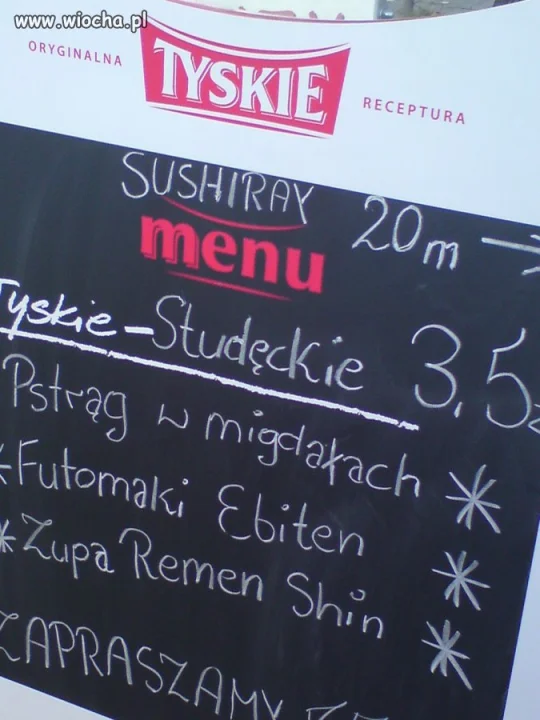 www.wiocha.pl
ORYGINALNA TYSKIE RECEPTURA
SUSHIRAY
menu 20m →
Tyskie-Studęckie 3,5z
Pstrąg w migdałach *
*Futomaki Ebiten *
*Zupa Remen Shin *
ZAPRASZAMY